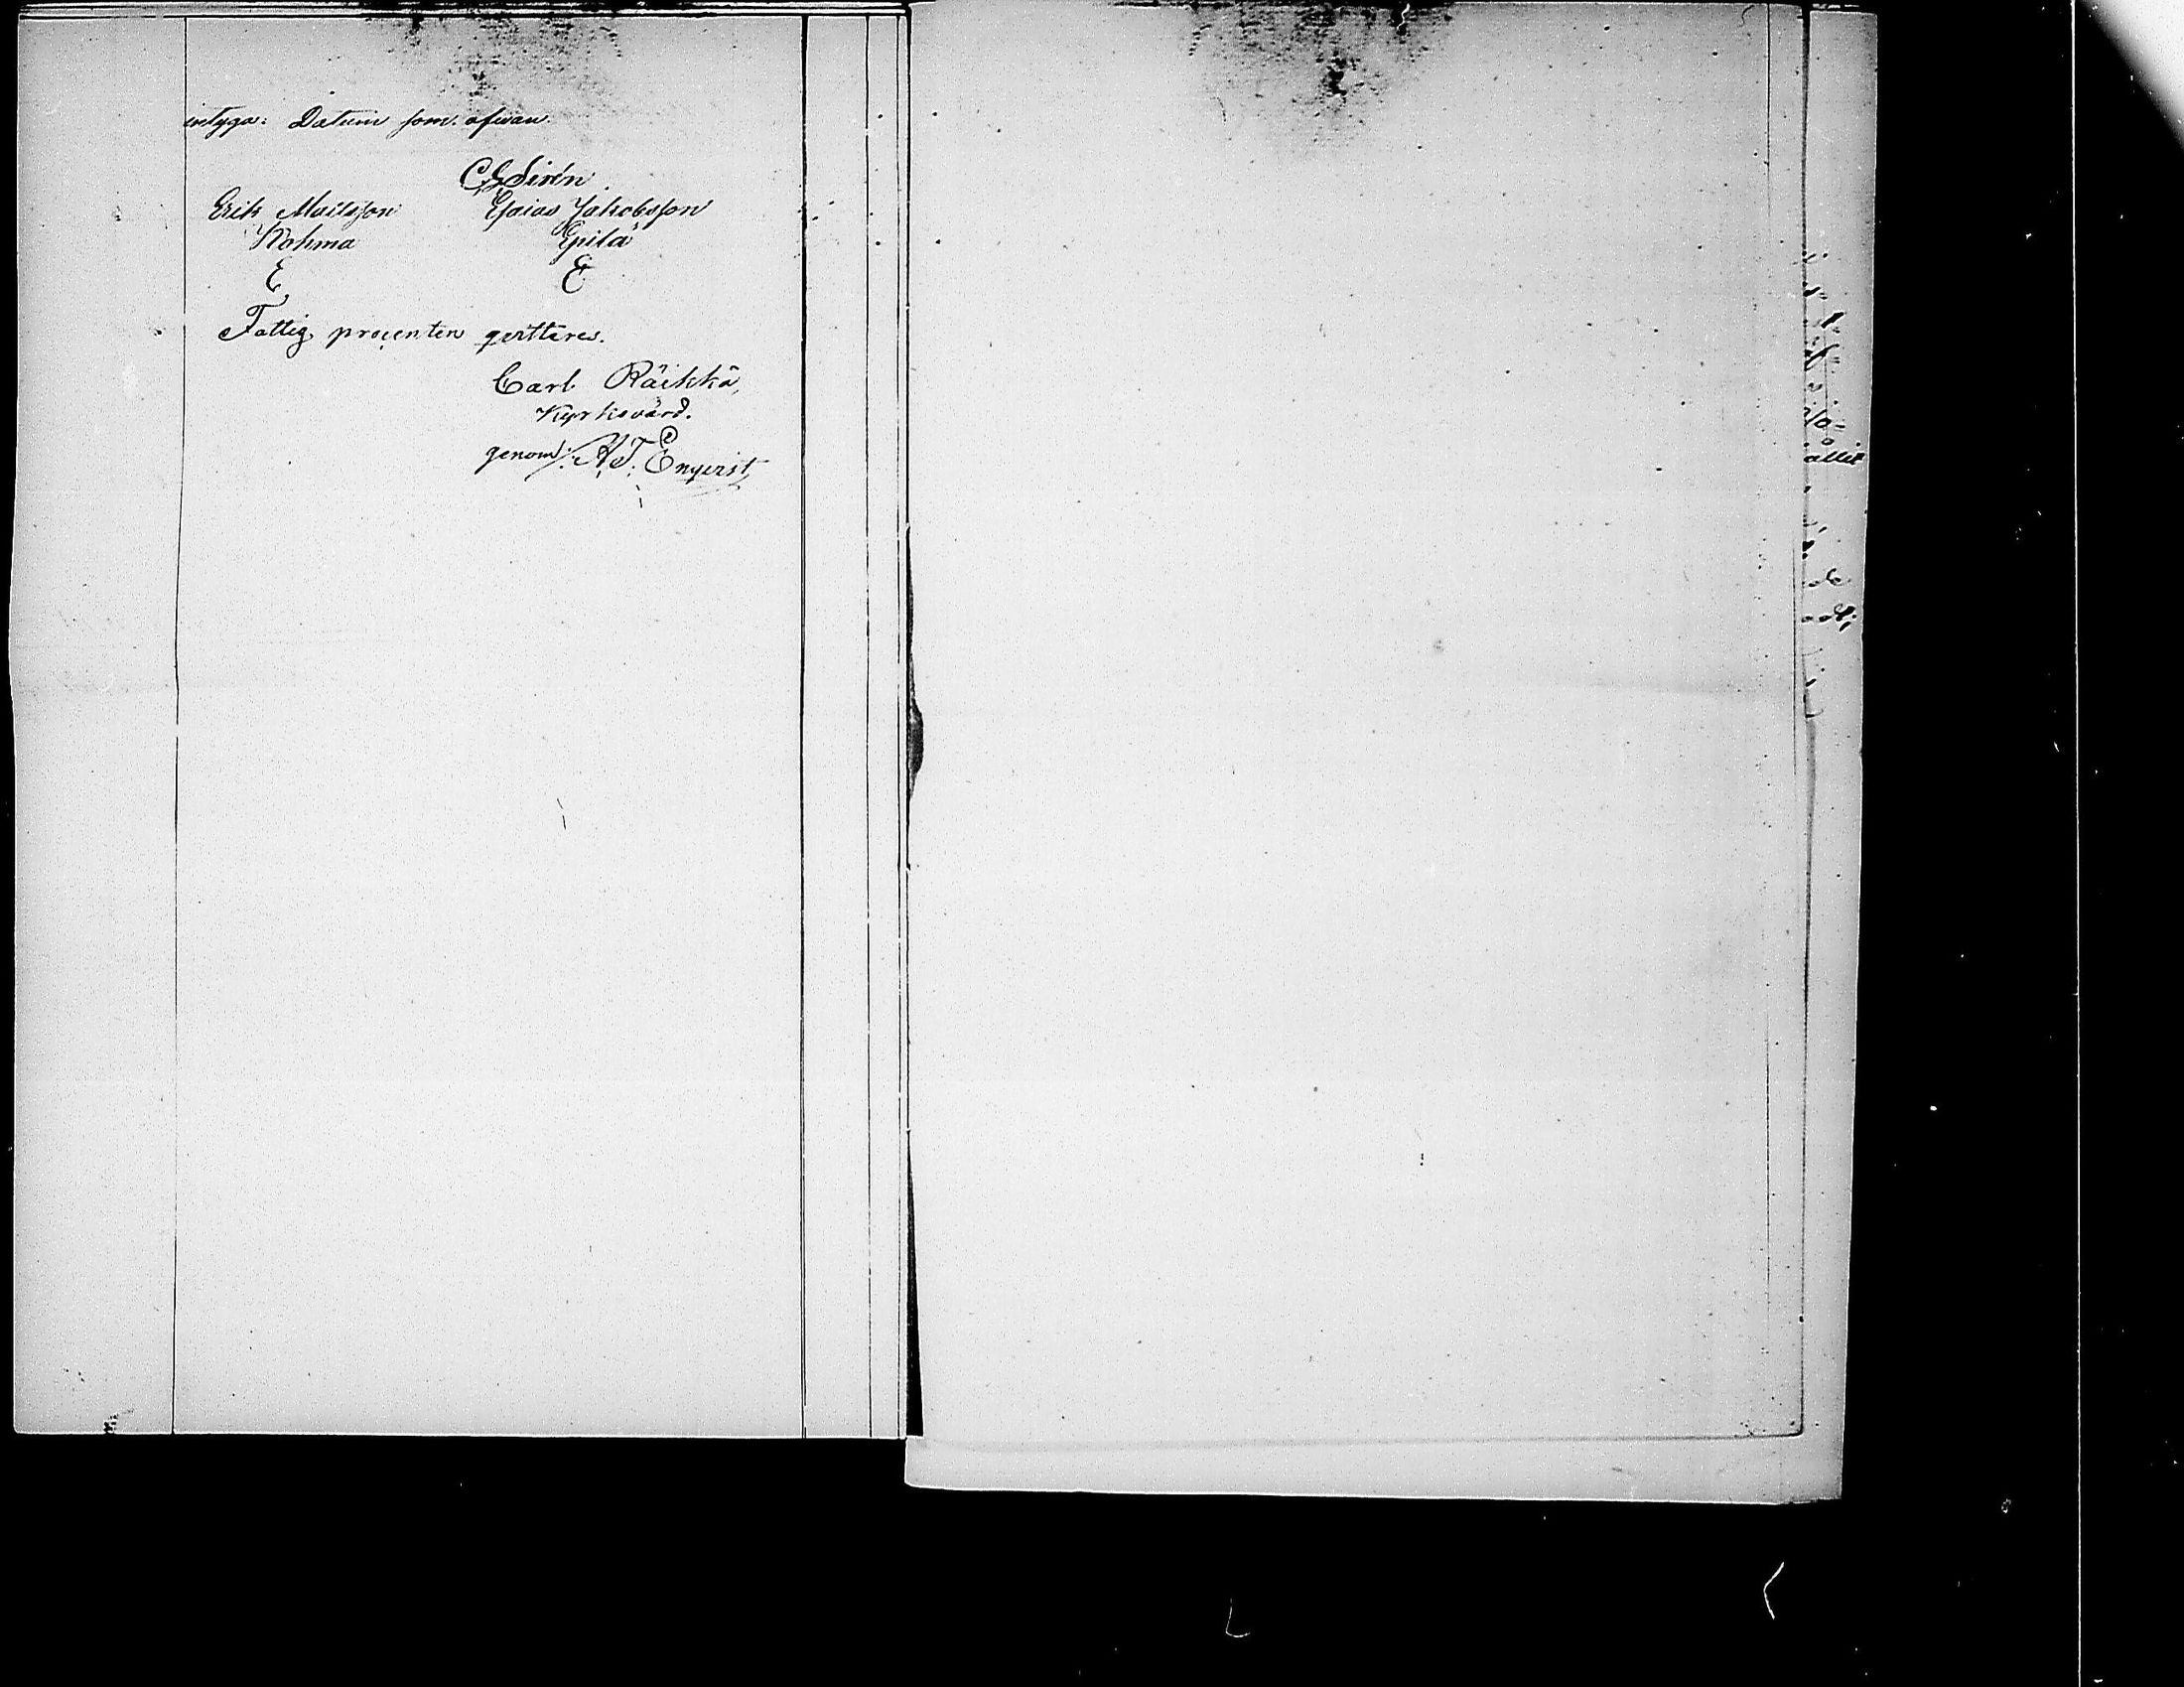 intyga: Datum som ofwan.
C. G. Sirén
Erik Mattsson Esaias Jakobsson
Kohma Epilä
E E
Fattig procenten qvitteras.
Carl Räikkä,
Kyrkovärd.
genom: A. T. Enqvist